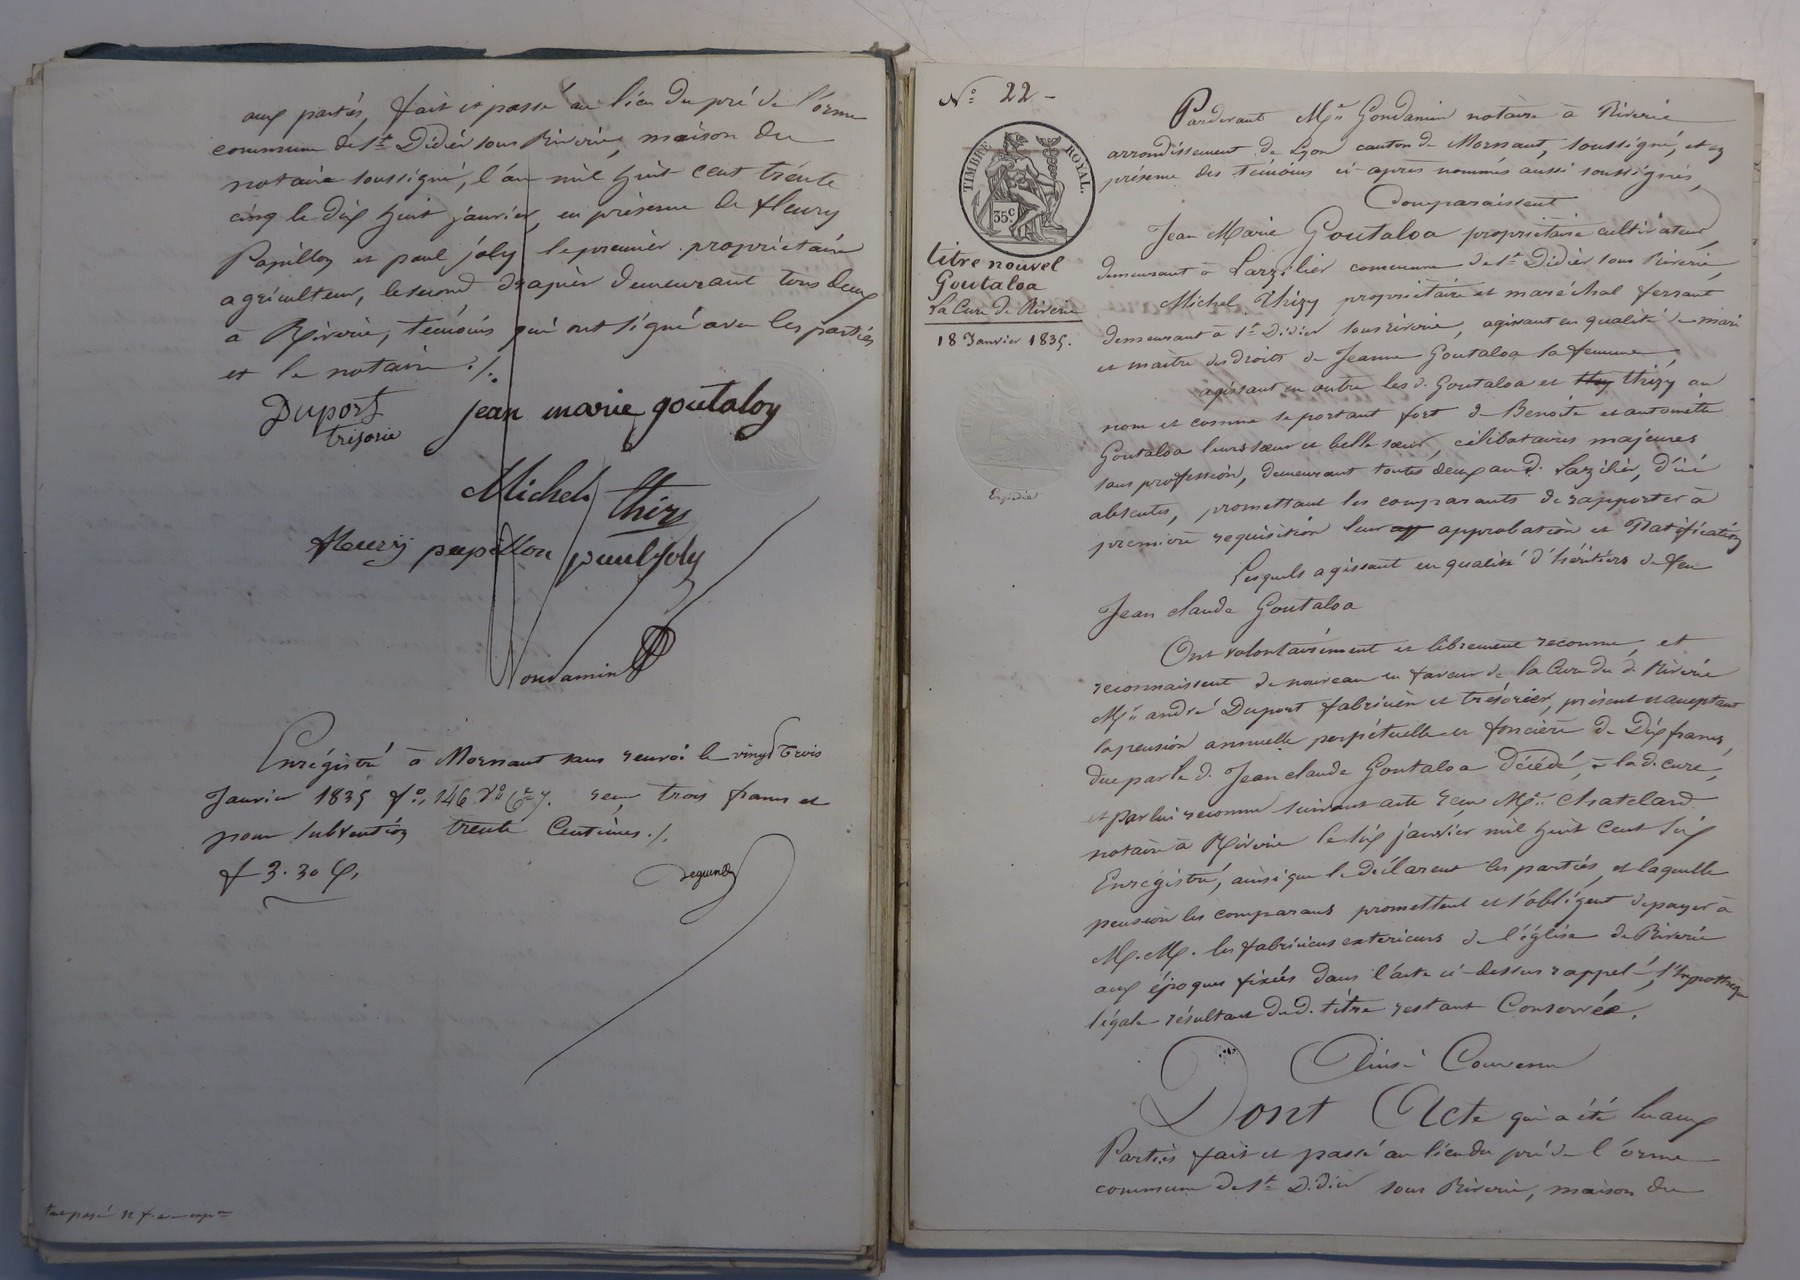 aux partés, fait et passé au lieu du pré de l'orme
commune de St Didier sous Riverie, maison du
notaire soussigné, l'an mil huit cent trente
cinq le dix huit janvier, en présence de fleury
Papillon et paul joly le premier propriétaire
agriculteur, le second drapier demeurant tous deux
à Riverie, témoins qui ont signé avec les partiés
et le notaire ./.
Duport
trésorie
jean marie goutaloy
Michel thizy
fleury papillon paul Joly
Goudamin
Enrégistré à Mornant sans renvoi le vingt trois
Janvier 1835 fo. 146 Vo Ce 7. reçu trois francs et
pour subvention trente Centimes ./.
f 3.30 C.
No 22 -
TIMBRE ROYAL.
35c
titre nouvel
Goutaloa
La Cure de Riverie
18 Janvier 1835.
Expédié
Pardevant Me Goudamin notaire à Riverie
arrondissement de Lyon canton de Mornant, soussigné, et en
présence des témoins ci-après nommés aussi soussignés,
Comparaissent
Jean Marie Goutaloa propriétaire cultivateur,
demeurant à Larzilier commune de St Didier sous Riverie,
Michel Thizy propriétaire et maréchal ferrant
demeurant à St Didier sous riverie, agissant en qualité de mari
et maitre des droits de Jeanne Goutaloa sa femme,
agissant en outre les d. Goutaloa et thizy au
nom et comme se portant fort de Benoite et antoinette
Goutaloa leurs sœur et belle sœur, célibataires majeures
sans profession, demeurant toutes deux au d. Larzilier, d'ici
absentes, promettant les comparants de rapporter à
première requisition leur approbation et Ratification
Lesquels agissant en qualité d'héritiers de feu
Jean claude Goutaloa
Ont volontairement et librement reconnu, et
reconnaissent de nouveau en faveur de la Cure du d. Riverie
Me andré Duport fabricien et trésorier, présent et acceptant
la pension annuelle perpétuelle et foncière de Dix francs,
due par le d. Jean claude Goutaloa décédé, à la d. cure,
et par lui reconnu suivant acte reçu Me Chatelard
notaire à Riverie le six janvier mil huit cent six
Enrégistré, ainsi que le déclarent les partiés, et laquelle
pension les comparans promettent et s'obligent de payer à
M.M. les fabriciens exterieurs de l'église de Riverie
aux époques fixées dans l'acte ci-dessus rappelé, l'hypothèque
légale résultant du d. titre restant Conservée.
Ainsi Convenu
Dont Acte qui a été lu aux
Parties fait et passé au lieu du pré de l'orme
commune de St Didier sous Riverie, maison du